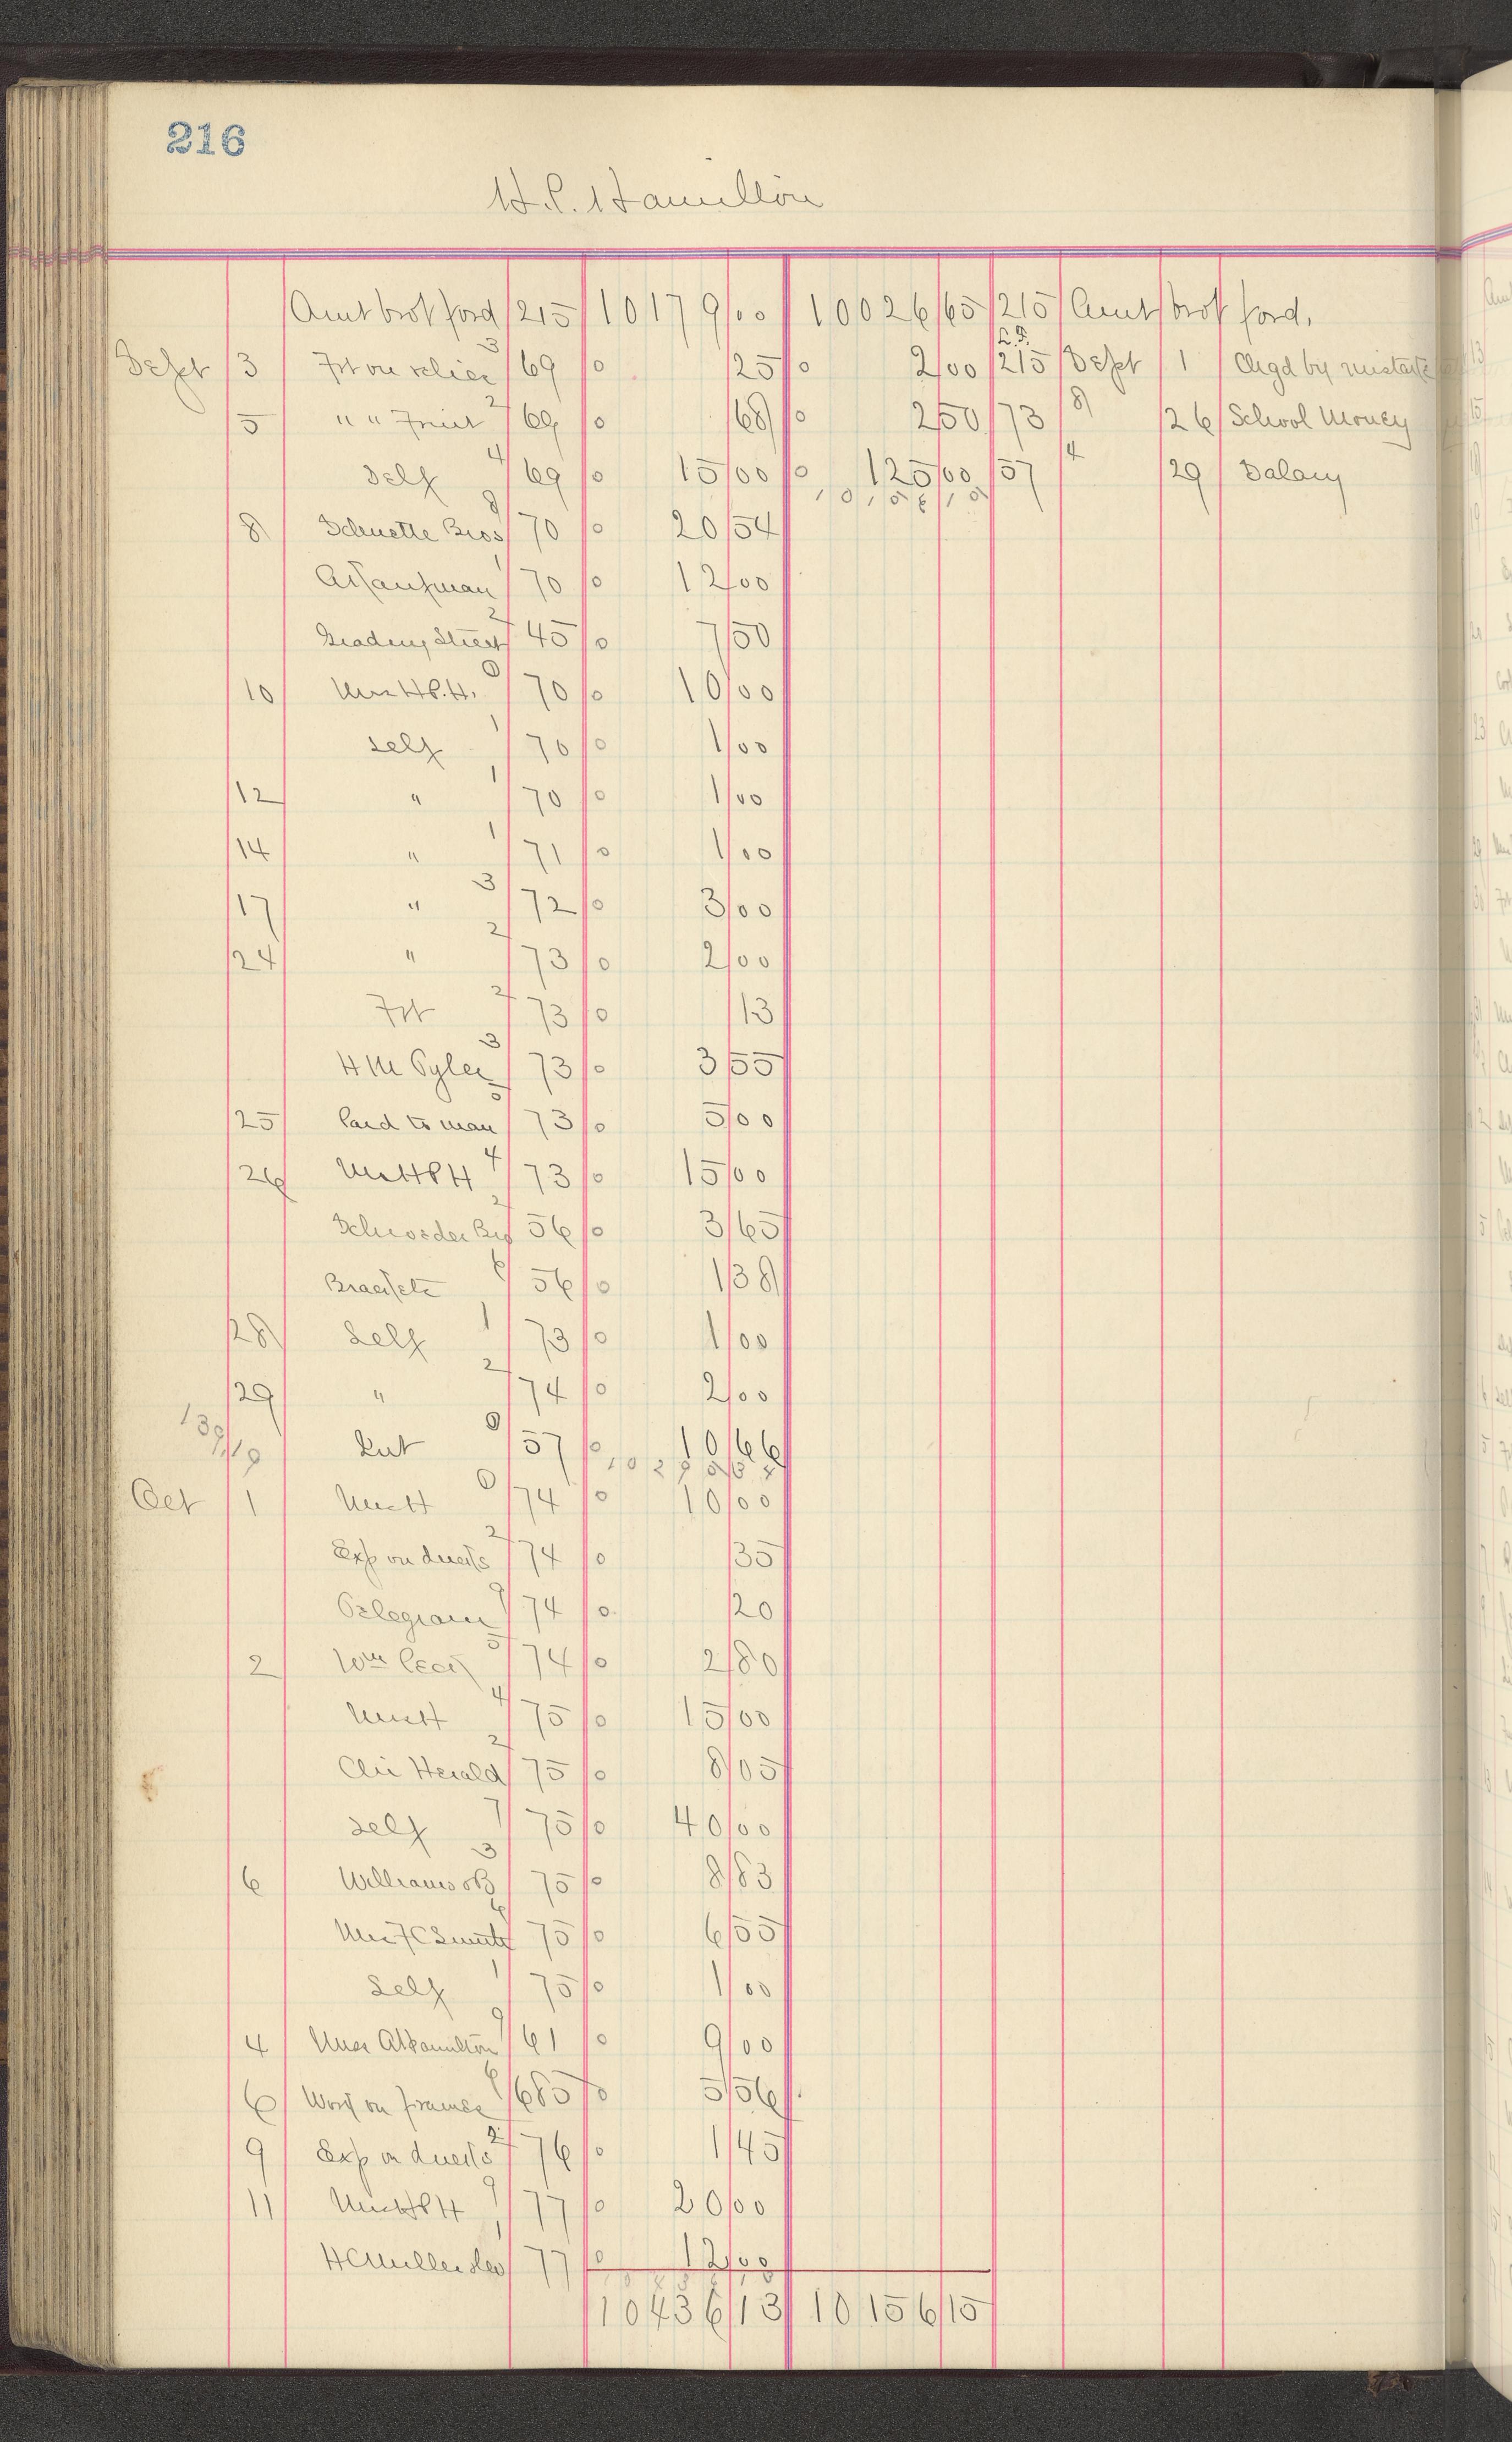 216
H.P. Hamilton
Amt brot ford 215 10179 00 10026 65 215 Amt brot ford.
Sept 3 Frt on relies 3 69 0 25 0 2 00 L.F. 215 Sept 1 Chgd by mistake
5 " " Fruit 2 69 0 68 0 2 50 73 8 26 School Money
Self 4 69 0 15 00 0 125 00 57 4 29 Salary
10156 15
8 Schuette Bros 8 70 0 20 54
A Kaufman 70 0 12 00
Grading Street 2 45 0 7 50
10 Mrs H.P.H. 0 70 0 10 00
self 1 70 0 1 00
12 " 1 70 0 1 00
14 " 1 71 0 1 00
17 " 3 72 0 3 00
24 " 2 73 0 2 00
Frt 2 73 0 13
H M Tyler 3 73 0 3 55
25 Paid to man 5 73 0 5 00
26 Mrs HPH 4 73 0 15 00
Schroeder Bro 2 56 0 3 65
6 56 0 1 38
28 Self 1 73 0 1 00
29 " 2 74 0 2 00
130
Int 0 57 0 10 66
Oct 1 Mrs H 0 74 0 10 00
Exp on ducks 2 74 0 35
Telegram 9 74 0 20
2 Wm 5 74 0 2 80
Mrs H 4 75 0 15 00
Chi Herald 2 75 0 8 05
self 7 75 0 40 00
6 Williams & B 3 75 0 8 83
Mrs F C Smith 6 75 0 6 55
Self 1 75 0 1 00
4 Miss A Hamilton 9 61 0 9 00
6 Work on frames 6 685 0 5 56
9 Exp on ducks 2 76 0 1 45
11 Mrs HPH 9 77 0 20 00
H C Mueller 1 77 0 12 00
10436 13 10156 15